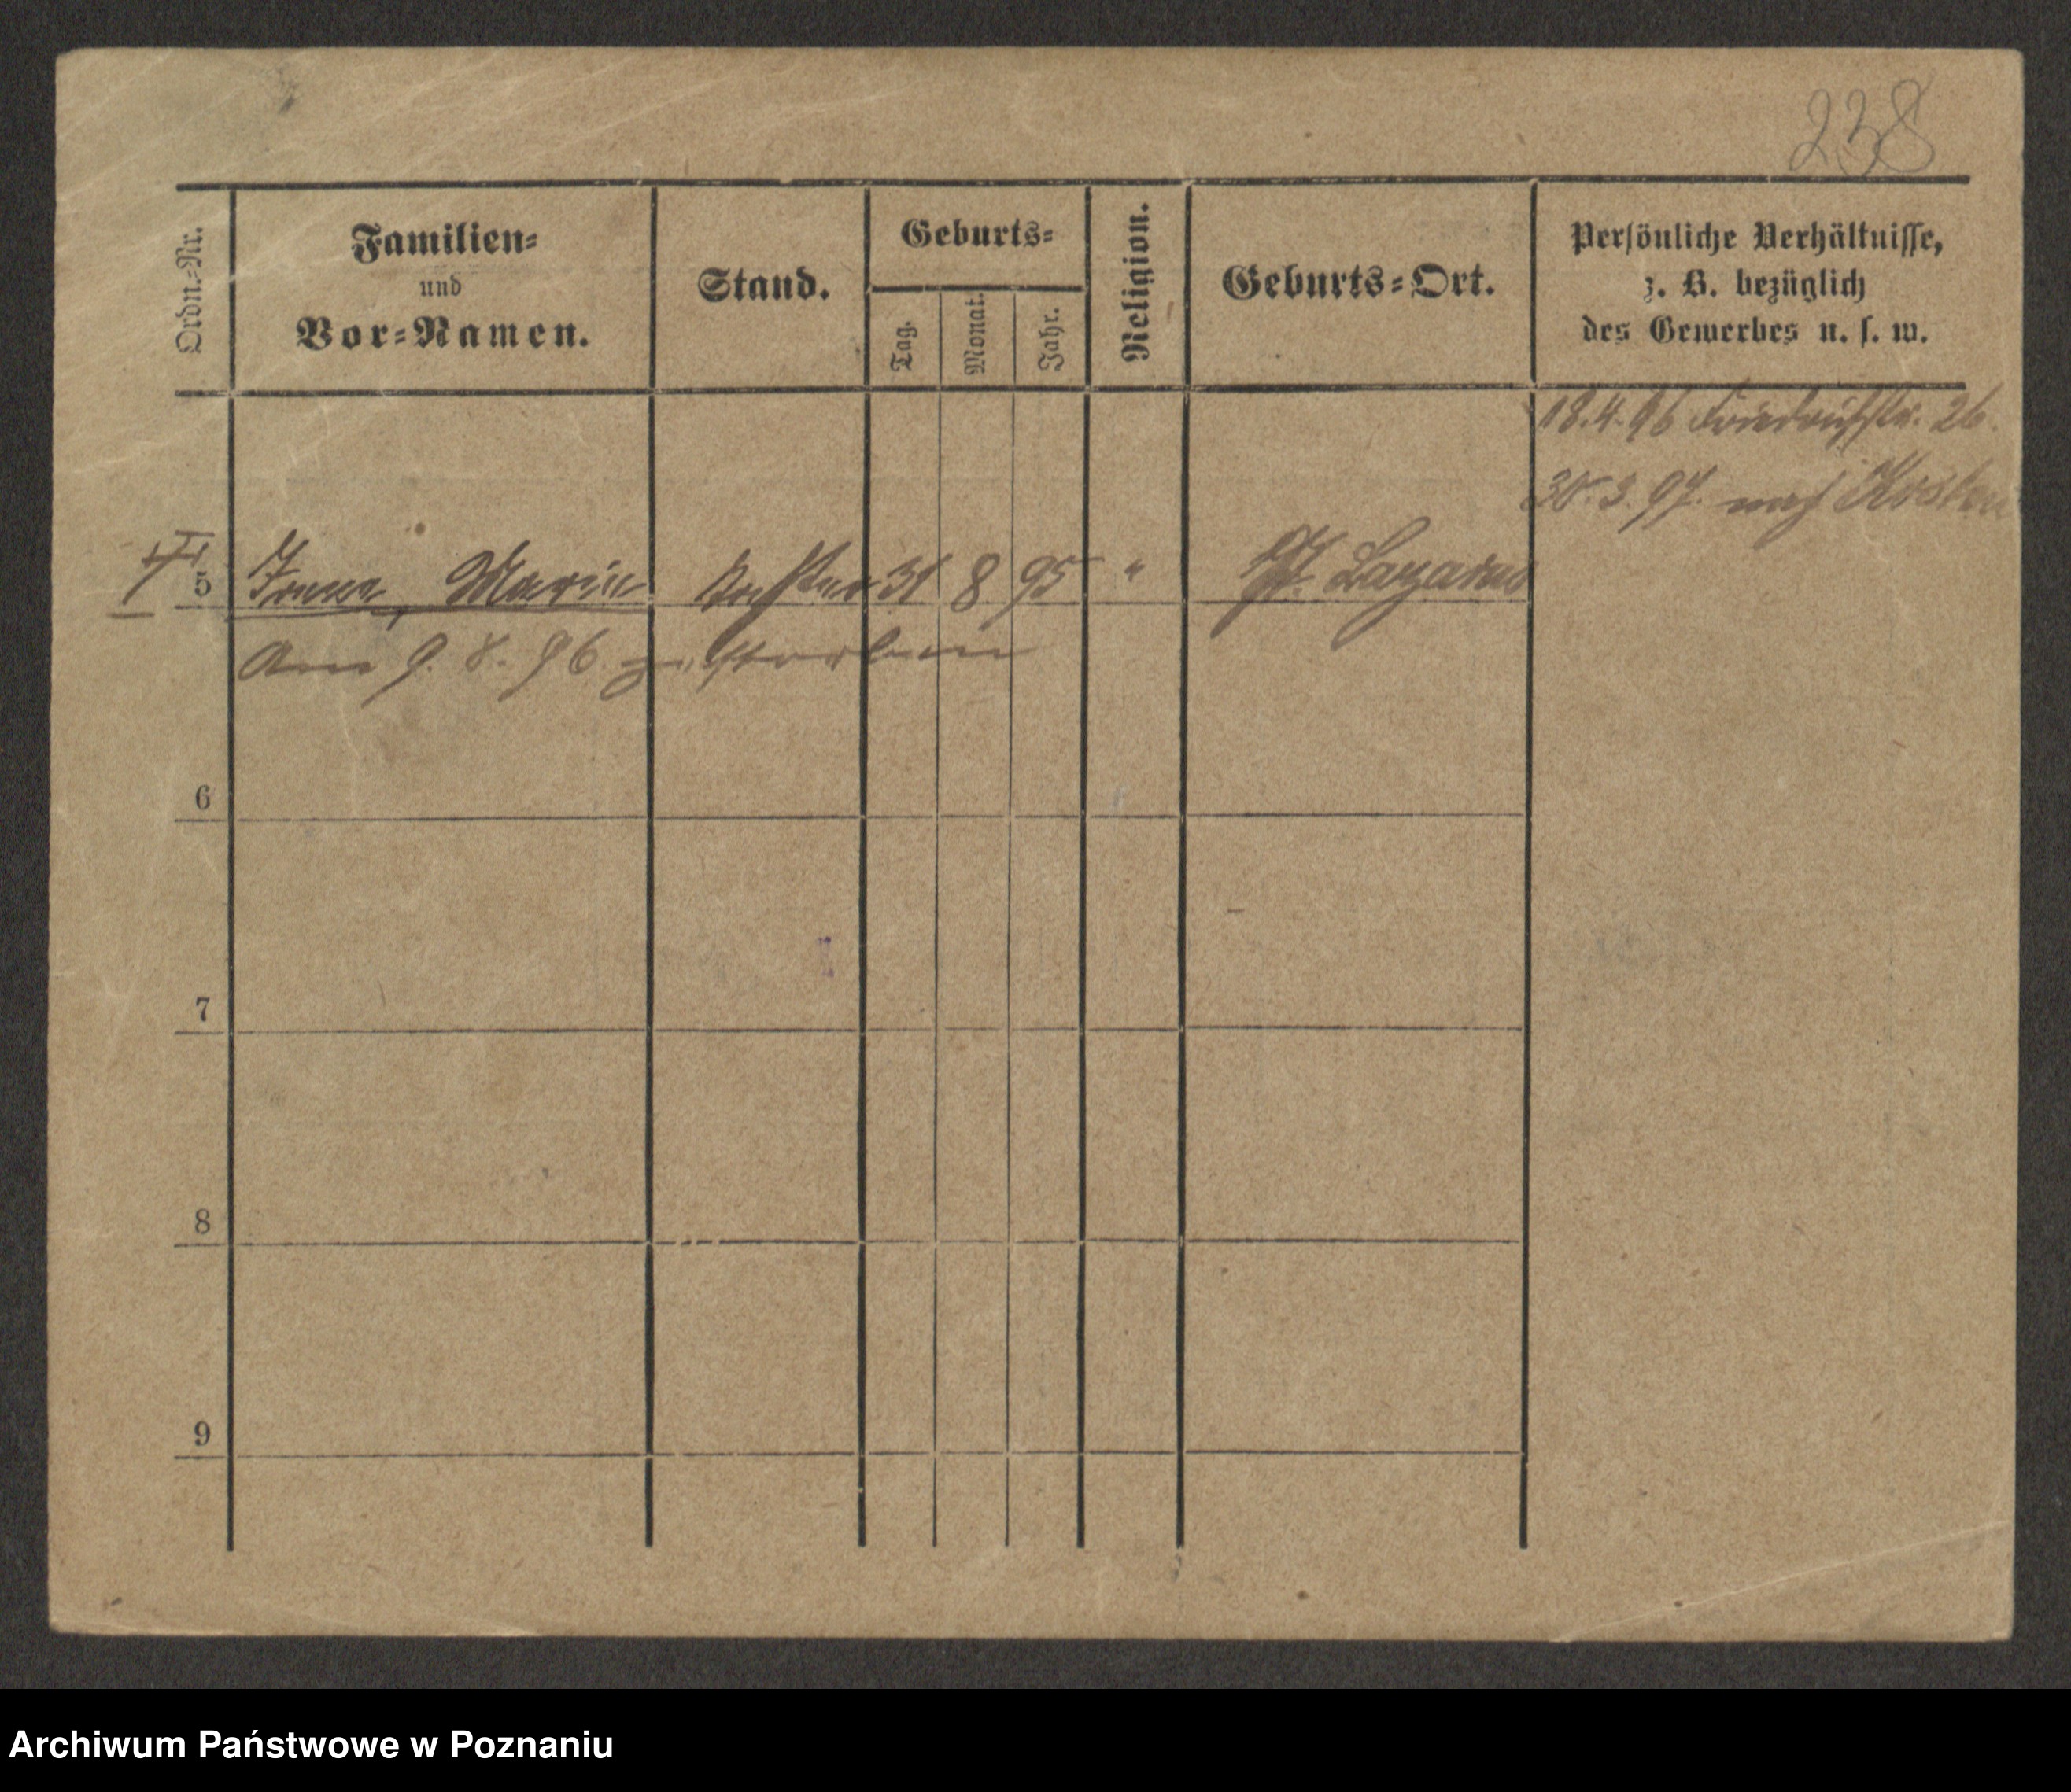 238
Ordn.-Nr.
Familien-
und
Vor-Namen.
Stand.
Geburts-
Tag.
Monat.
Jahr.
Religion.
Geburts-Ort.
Persönliche Verhältnisse,
z. B. bezüglich
des Gewerbes u. s. w.
18.4.96 Friedrichstr. 26.
30.3.97. nach Kosten
5 Irene, Marie Tochter 31 8 95 " St. Lazarus
Am 9. 8. 96. gestorben
6
7
8
9
Archiwum Państwowe w Poznaniu